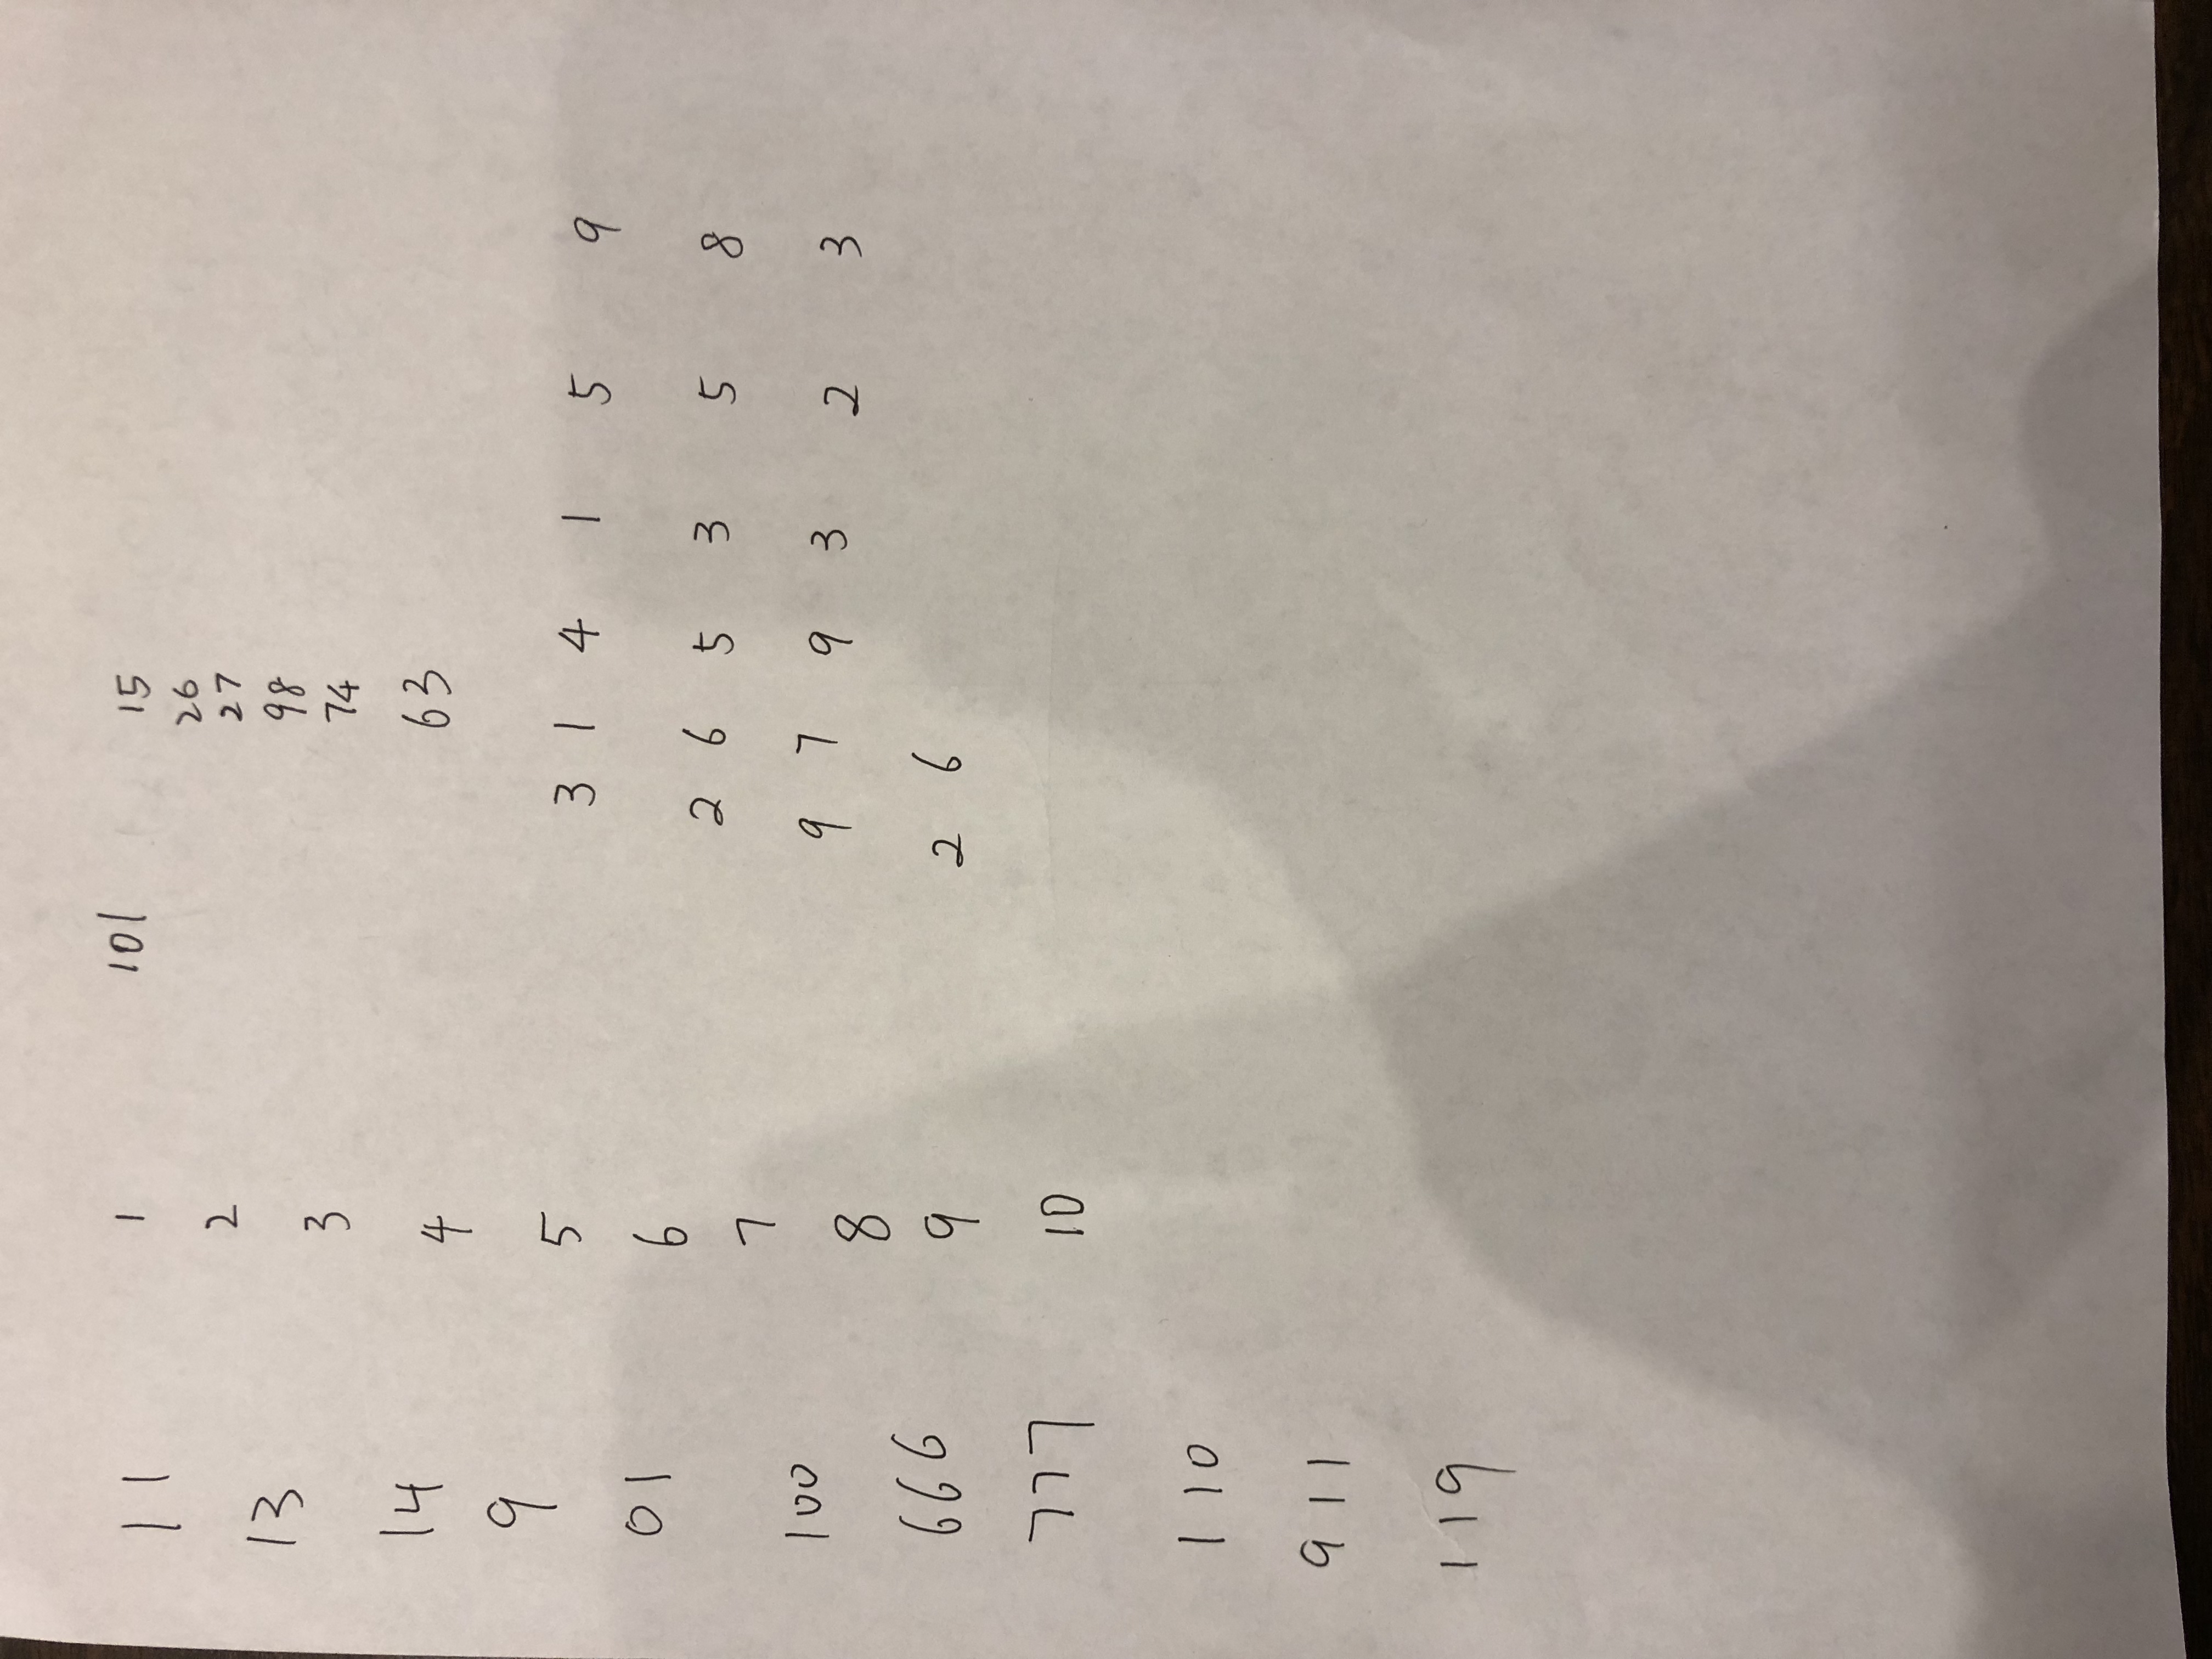 11
13
14
9
01
100
666
777
110
911
119
1
2
3
4
5
6
7
8
9
10
101
15
26
27
98
74
63
3 1 4 1 5 9
2 6 5 3 5 8
9 7 9 3 2 3
2 6